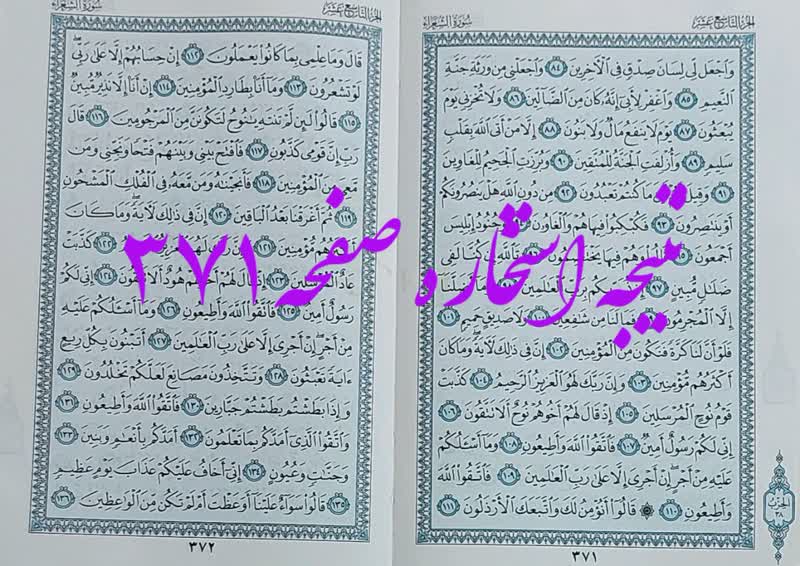 الجزء التاسع عشر سورة الشعراء
وَاجْعَل لِّي لِسَانَ صِدْقٍ فِي الْآخِرِينَ ٨٤ وَاجْعَلْنِي مِن وَرَثَةِ جَنَّةِ
النَّعِيمِ ٨٥ وَاغْفِرْ لِأَبِي إِنَّهُ كَانَ مِنَ الضَّالِّينَ ٨٦ وَلَا تُخْزِنِي يَوْمَ
يُبْعَثُونَ ٨٧ يَوْمَ لَا يَنفَعُ مَالٌ وَلَا بَنُونَ ٨٨ إِلَّا مَنْ أَتَى اللَّهَ بِقَلْبٍ
سَلِيمٍ ٨٩ وَأُزْلِفَتِ الْجَنَّةُ لِلْمُتَّقِينَ ٩٠ وَبُرِّزَتِ الْجَحِيمُ لِلْغَاوِينَ
٩١ وَقِيلَ مَا كُنتُمْ تَعْبُدُونَ ٩٢ مِن دُونِ اللَّهِ هَلْ يَنصُرُونَكُمْ
أَوْ يَنتَصِرُونَ ٩٣ فَكُبْكِبُوا فِيهَا هُمْ وَالْغَاوُونَ وَجُنُودُ إِبْلِيسَ
أَجْمَعُونَ ٩٥ قَالُوا وَهُمْ فِيهَا تَاللَّهِ إِن كُنَّا لَفِي
ضَلَالٍ مُّبِينٍ ٩٧ بِرَبِّ الْعَالَمِينَ
إِلَّا الْمُجْرِمُونَ فَمَا لَنَا مِن شَافِعِينَ ١٠٠ وَلَا صَدِيقٍ حَمِيمٍ ١٠١
فَلَوْ أَنَّ لَنَا كَرَّةً فَنَكُونَ مِنَ الْمُؤْمِنِينَ ١٠٢ إِنَّ فِي ذَٰلِكَ لَآيَةً وَمَا كَانَ
أَكْثَرُهُم مُّؤْمِنِينَ ١٠٣ وَإِنَّ رَبَّكَ لَهُوَ الْعَزِيزُ الرَّحِيمُ ١٠٤ كَذَّبَتْ
قَوْمُ نُوحٍ الْمُرْسَلِينَ ١٠٥ إِذْ قَالَ لَهُمْ أَخُوهُمْ نُوحٌ أَلَا تَتَّقُونَ ١٠٦
إِنِّي لَكُمْ رَسُولٌ أَمِينٌ ١٠٧ فَاتَّقُوا اللَّهَ وَأَطِيعُونِ ١٠٨ وَمَا أَسْأَلُكُمْ
عَلَيْهِ مِنْ أَجْرٍ إِنْ أَجْرِيَ إِلَّا عَلَىٰ رَبِّ الْعَالَمِينَ ١٠٩ فَاتَّقُوا اللَّهَ
وَأَطِيعُونِ ١١٠ ۞ قَالُوا أَنُؤْمِنُ لَكَ وَاتَّبَعَكَ الْأَرْذَلُونَ ١١١
الحزب ٣٨
٣٧١
الجزء التاسع عشر سورة الشعراء
قَالَ وَمَا عِلْمِي بِمَا كَانُوا يَعْمَلُونَ ١١٢ إِنْ حِسَابُهُمْ إِلَّا عَلَىٰ رَبِّي
لَوْ تَشْعُرُونَ ١١٣ وَمَا أَنَا بِطَارِدِ الْمُؤْمِنِينَ ١١٤ إِنْ أَنَا إِلَّا نَذِيرٌ مُّبِينٌ
١١٥ قَالُوا لَئِن لَّمْ تَنتَهِ يَا نُوحُ لَتَكُونَنَّ مِنَ الْمَرْجُومِينَ ١١٦ قَالَ
رَبِّ إِنَّ قَوْمِي كَذَّبُونِ ١١٧ فَافْتَحْ بَيْنِي وَبَيْنَهُمْ فَتْحًا وَنَجِّنِي وَمَن
مَّعِيَ مِنَ الْمُؤْمِنِينَ ١١٨ فَأَنجَيْنَاهُ وَمَن مَّعَهُ فِي الْفُلْكِ الْمَشْحُونِ
١١٩ ثُمَّ أَغْرَقْنَا بَعْدُ الْبَاقِينَ ١٢٠ إِنَّ فِي ذَٰلِكَ لَآيَةً وَمَا كَانَ
أَكْثَرُهُم مُّؤْمِنِينَ ١٢١ وَإِنَّ رَبَّكَ لَهُوَ الْعَزِيزُ ١٢٢ كَذَّبَتْ
عَادٌ الْمُرْسَلِينَ ١٢٣ إِذْ قَالَ لَهُمْ أَخُوهُمْ هُودٌ أَلَا تَتَّقُونَ ١٢٤ إِنِّي لَكُمْ
رَسُولٌ أَمِينٌ ١٢٥ فَاتَّقُوا اللَّهَ وَأَطِيعُونِ ١٢٦ وَمَا أَسْأَلُكُمْ عَلَيْهِ
مِنْ أَجْرٍ إِنْ أَجْرِيَ إِلَّا عَلَىٰ رَبِّ الْعَالَمِينَ ١٢٧ أَتَبْنُونَ بِكُلِّ رِيعٍ
آيَةً تَعْبَثُونَ ١٢٨ وَتَتَّخِذُونَ مَصَانِعَ لَعَلَّكُمْ تَخْلُدُونَ ١٢٩
وَإِذَا بَطَشْتُم بَطَشْتُمْ جَبَّارِينَ ١٣٠ فَاتَّقُوا اللَّهَ وَأَطِيعُونِ ١٣١
وَاتَّقُوا الَّذِي أَمَدَّكُم بِمَا تَعْلَمُونَ ١٣٢ أَمَدَّكُم بِأَنْعَامٍ وَبَنِينَ ١٣٣
وَجَنَّاتٍ وَعُيُونٍ ١٣٤ إِنِّي أَخَافُ عَلَيْكُمْ عَذَابَ يَوْمٍ عَظِيمٍ
١٣٥ قَالُوا سَوَاءٌ عَلَيْنَا أَوَعَظْتَ أَمْ لَمْ تَكُن مِّنَ الْوَاعِظِينَ ١٣٦
٣٧٢
نتیجه استخاره صفحه ۳۷۱